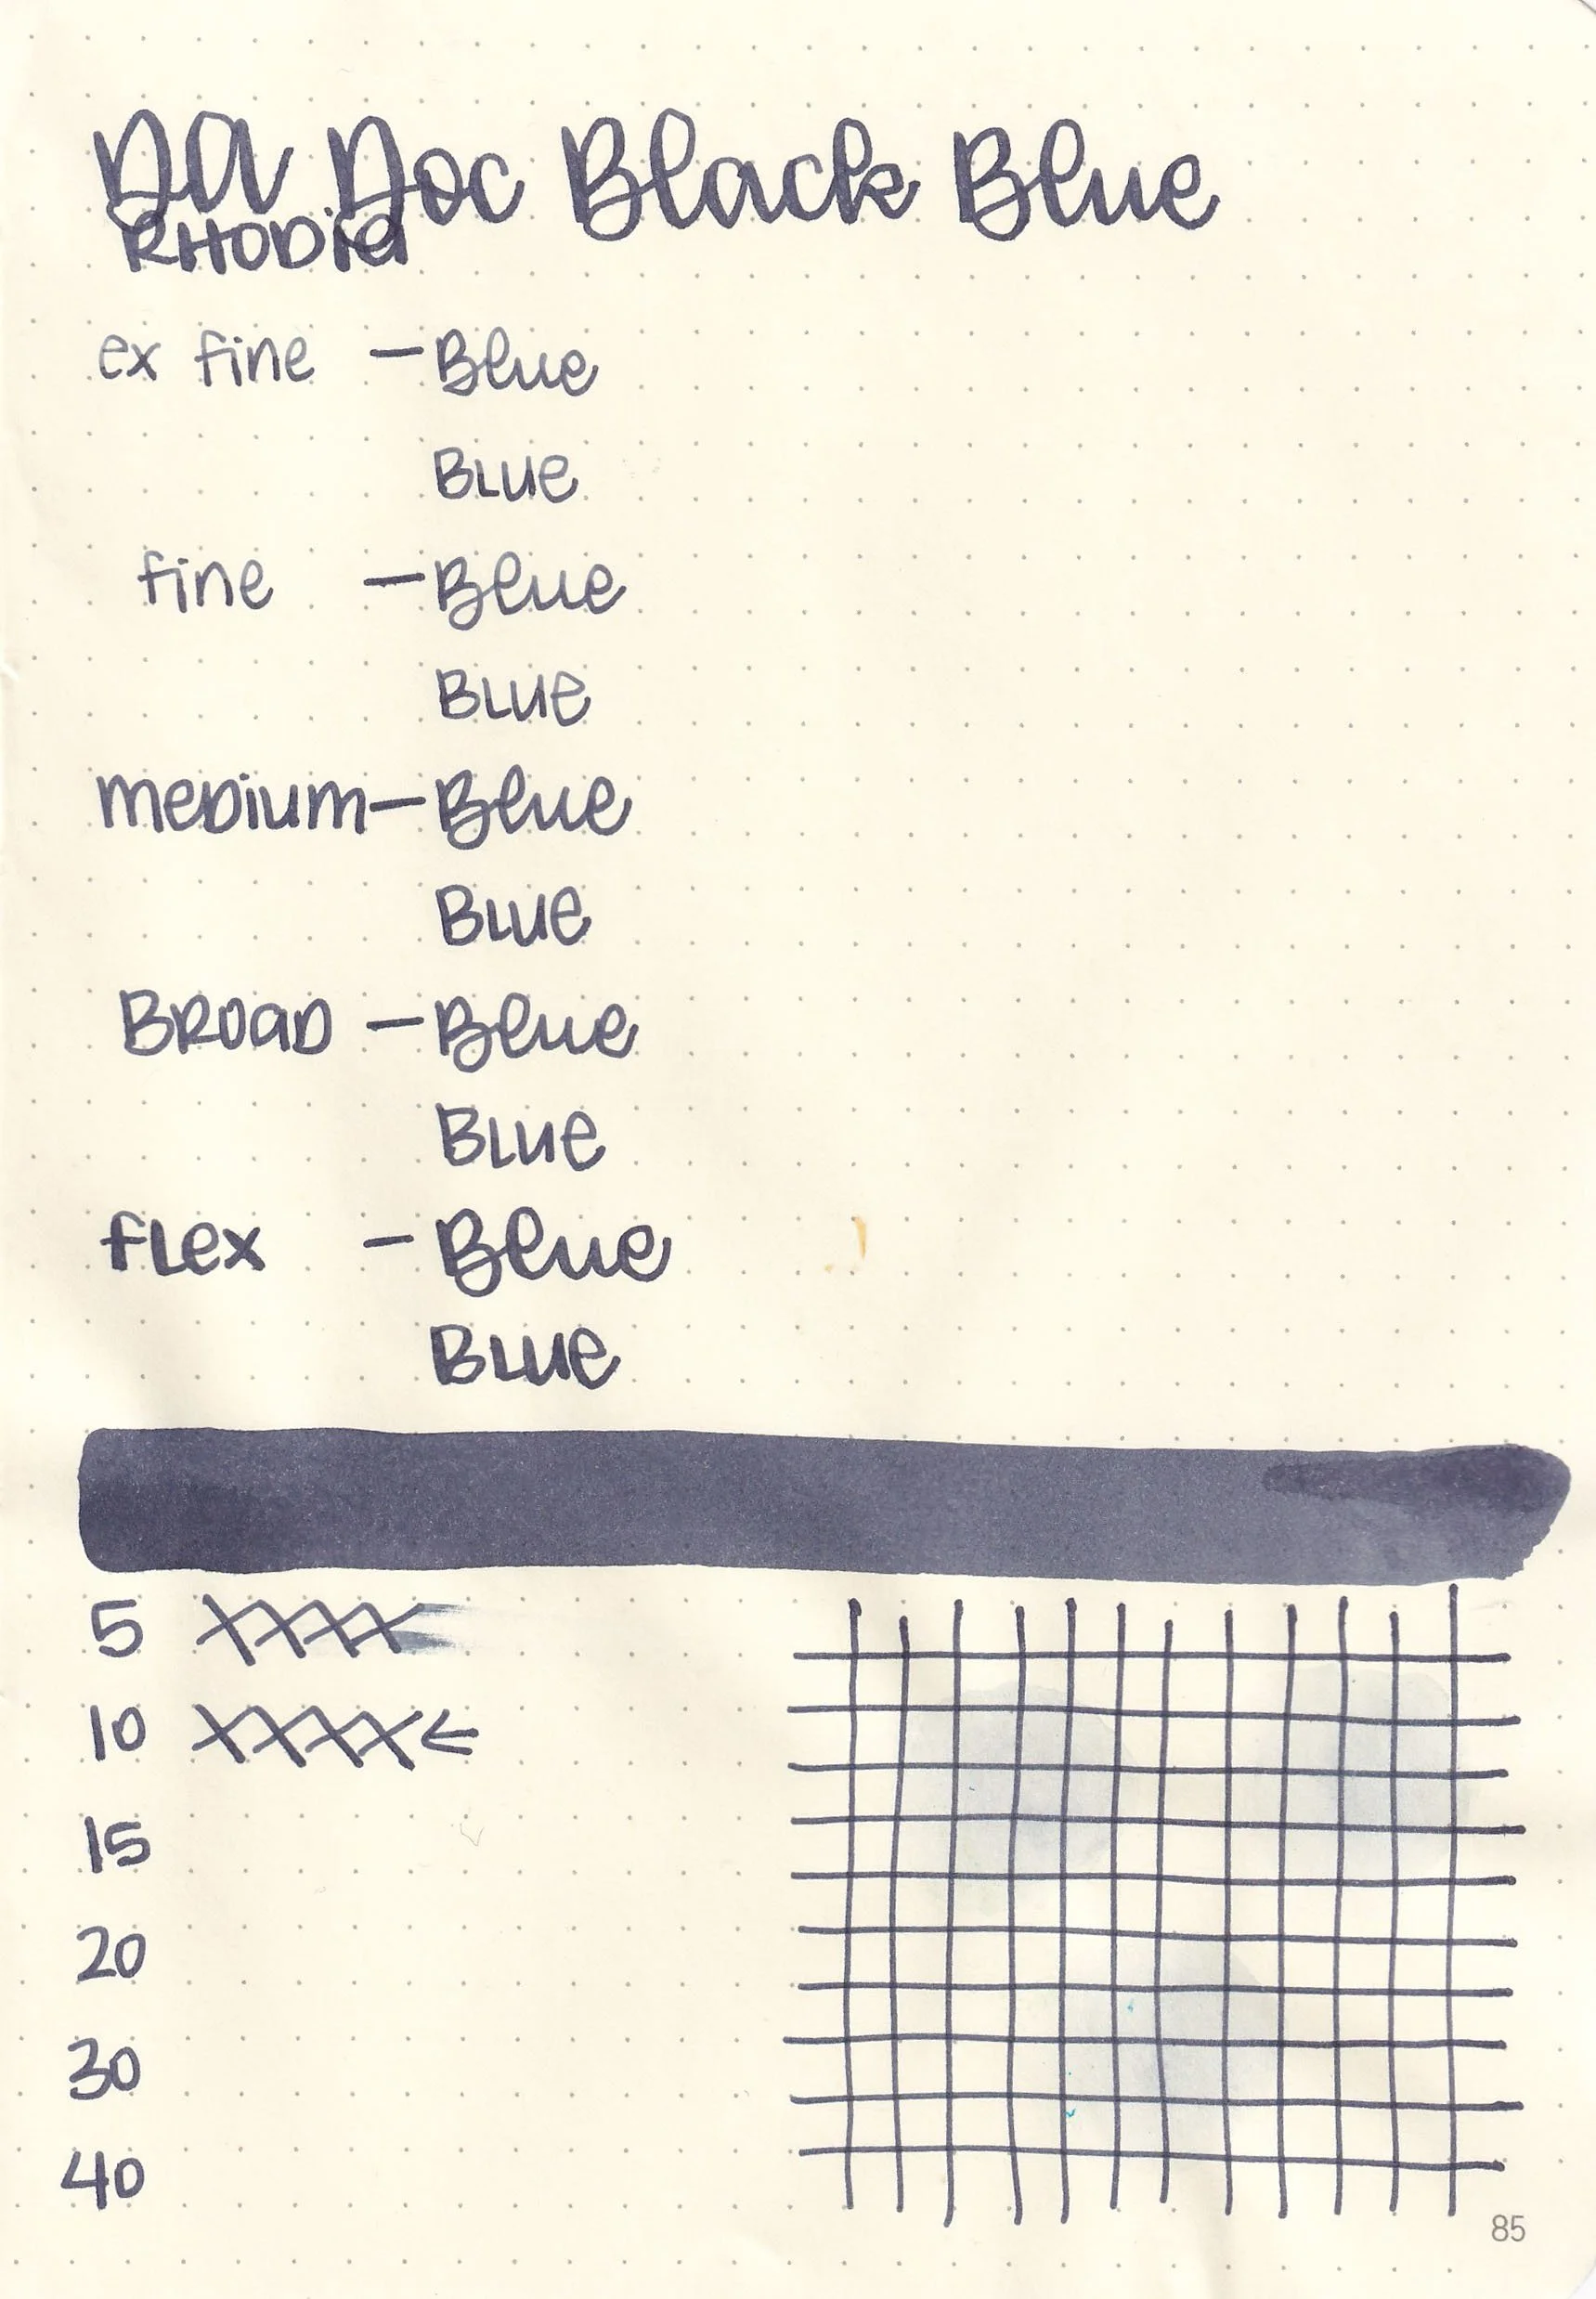 DA Doc Black Blue
RHODia
ex fine — Blue
BLUE
fine — Blue
BLUE
meDium — Blue
BLUE
BROaD — Blue
BLUE
fLex — Blue
BLUE
5 XXXX
10 XXXX ←
15
20
30
40
85